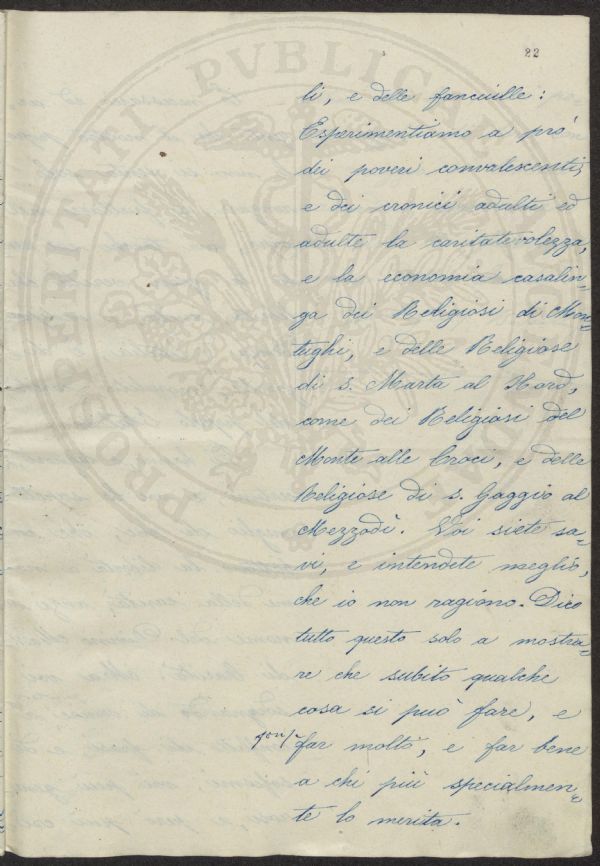 22
li, e delle fanciulle:
Esperimentiamo a prò
dei poveri convalescenti,
e dei cronici adulti ed
adulte la caritatevolezza,
e la economia casalin=
ga dei Religiosi di Mon=
tughi, e delle Religiose
di S. Marta al Nord,
come dei Religiosi del
Monte alle Croci, e delle
Religiose di S. Gaggio al
Mezzodì. Voi siete sa=
vi, e intendete meglio,
che io non ragiono. Dico
tutto questo solo a mostra=
re che subito qualche
cosa si può fare, e
far molto, e far bene
a chi più specialmen=
te lo merita.
PROSPERITATI PUBLICAE